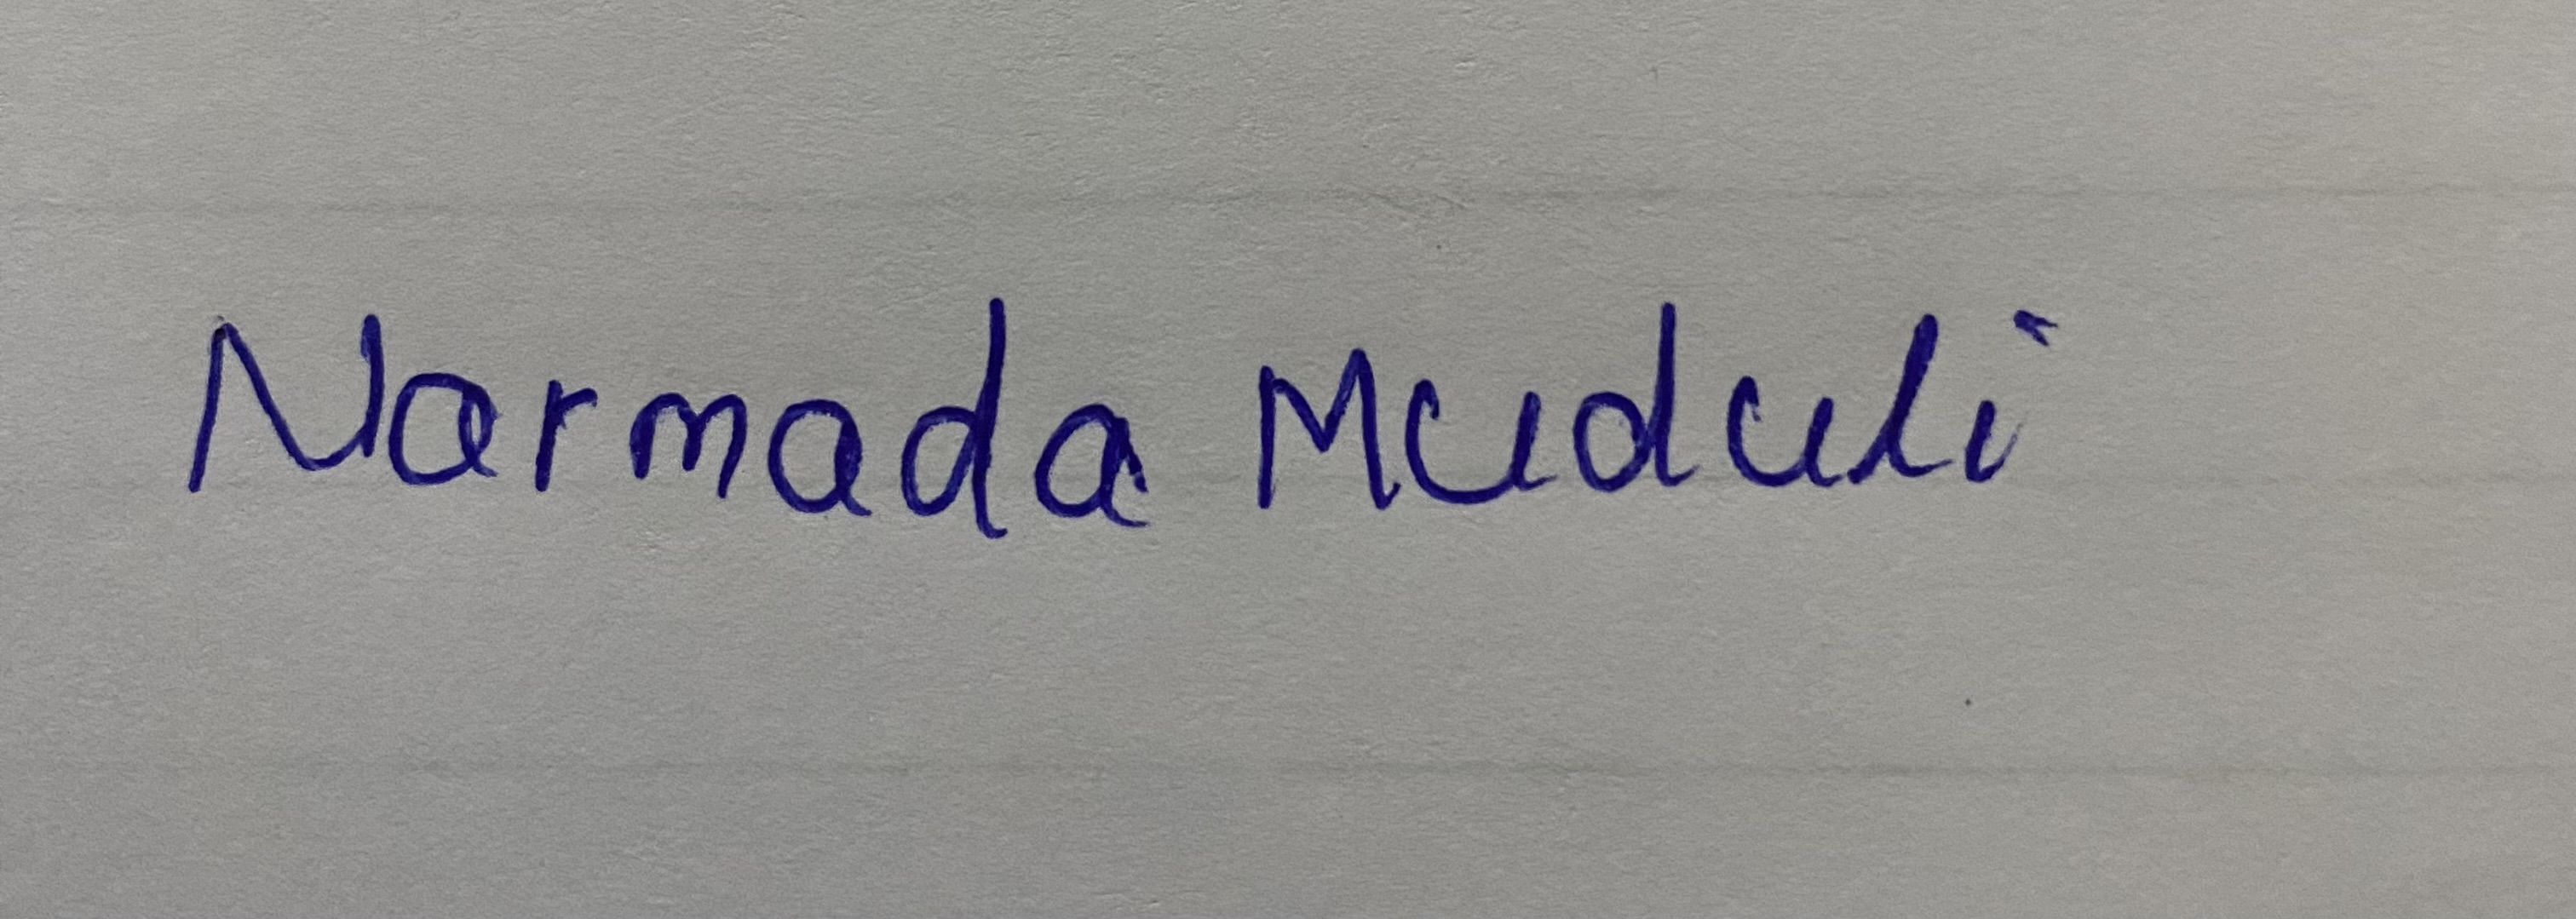 Narmada Muduli